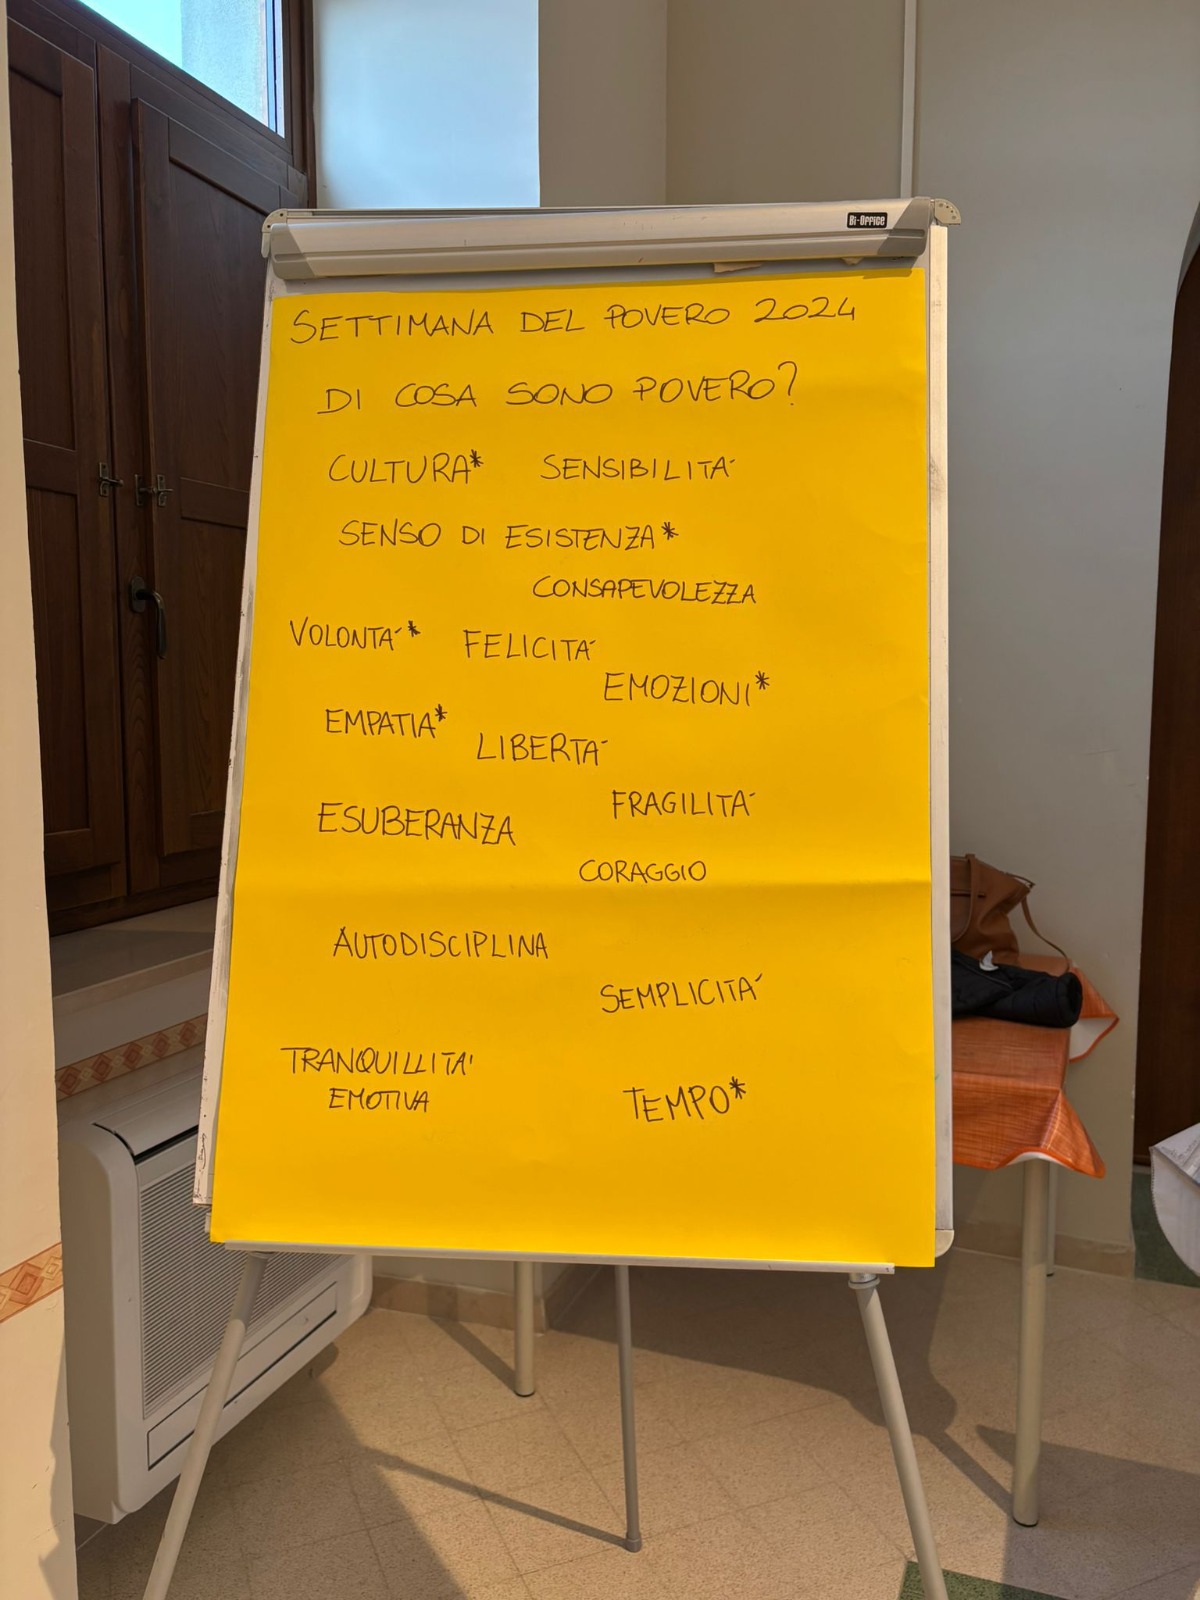 Bi-Office
SETTIMANA DEL POVERO 2024
DI COSA SONO POVERO?
CULTURA* SENSIBILITÁ
SENSO DI ESISTENZA*
CONSAPEVOLEZZA
VOLONTÁ* FELICITÁ
EMOZIONI*
EMPATIA* LIBERTÁ
FRAGILITÁ
ESUBERANZA
CORAGGIO
AUTODISCIPLINA
SEMPLICITÁ
TRANQUILLITA'
EMOTIVA
TEMPO*